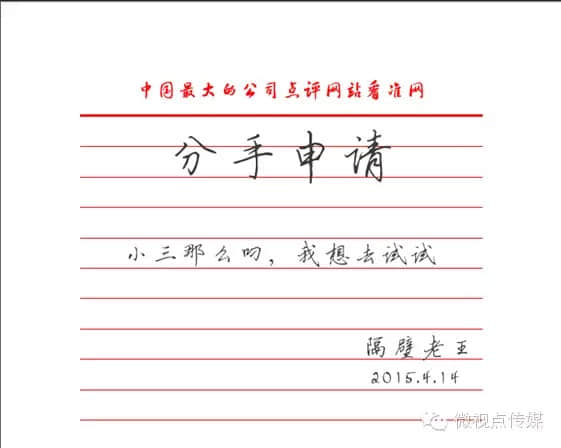 中国最大的公司点评网站看准网
分手申请
小三那么叼，我想去试试
隔壁老王
2015.4.14
微视点传媒